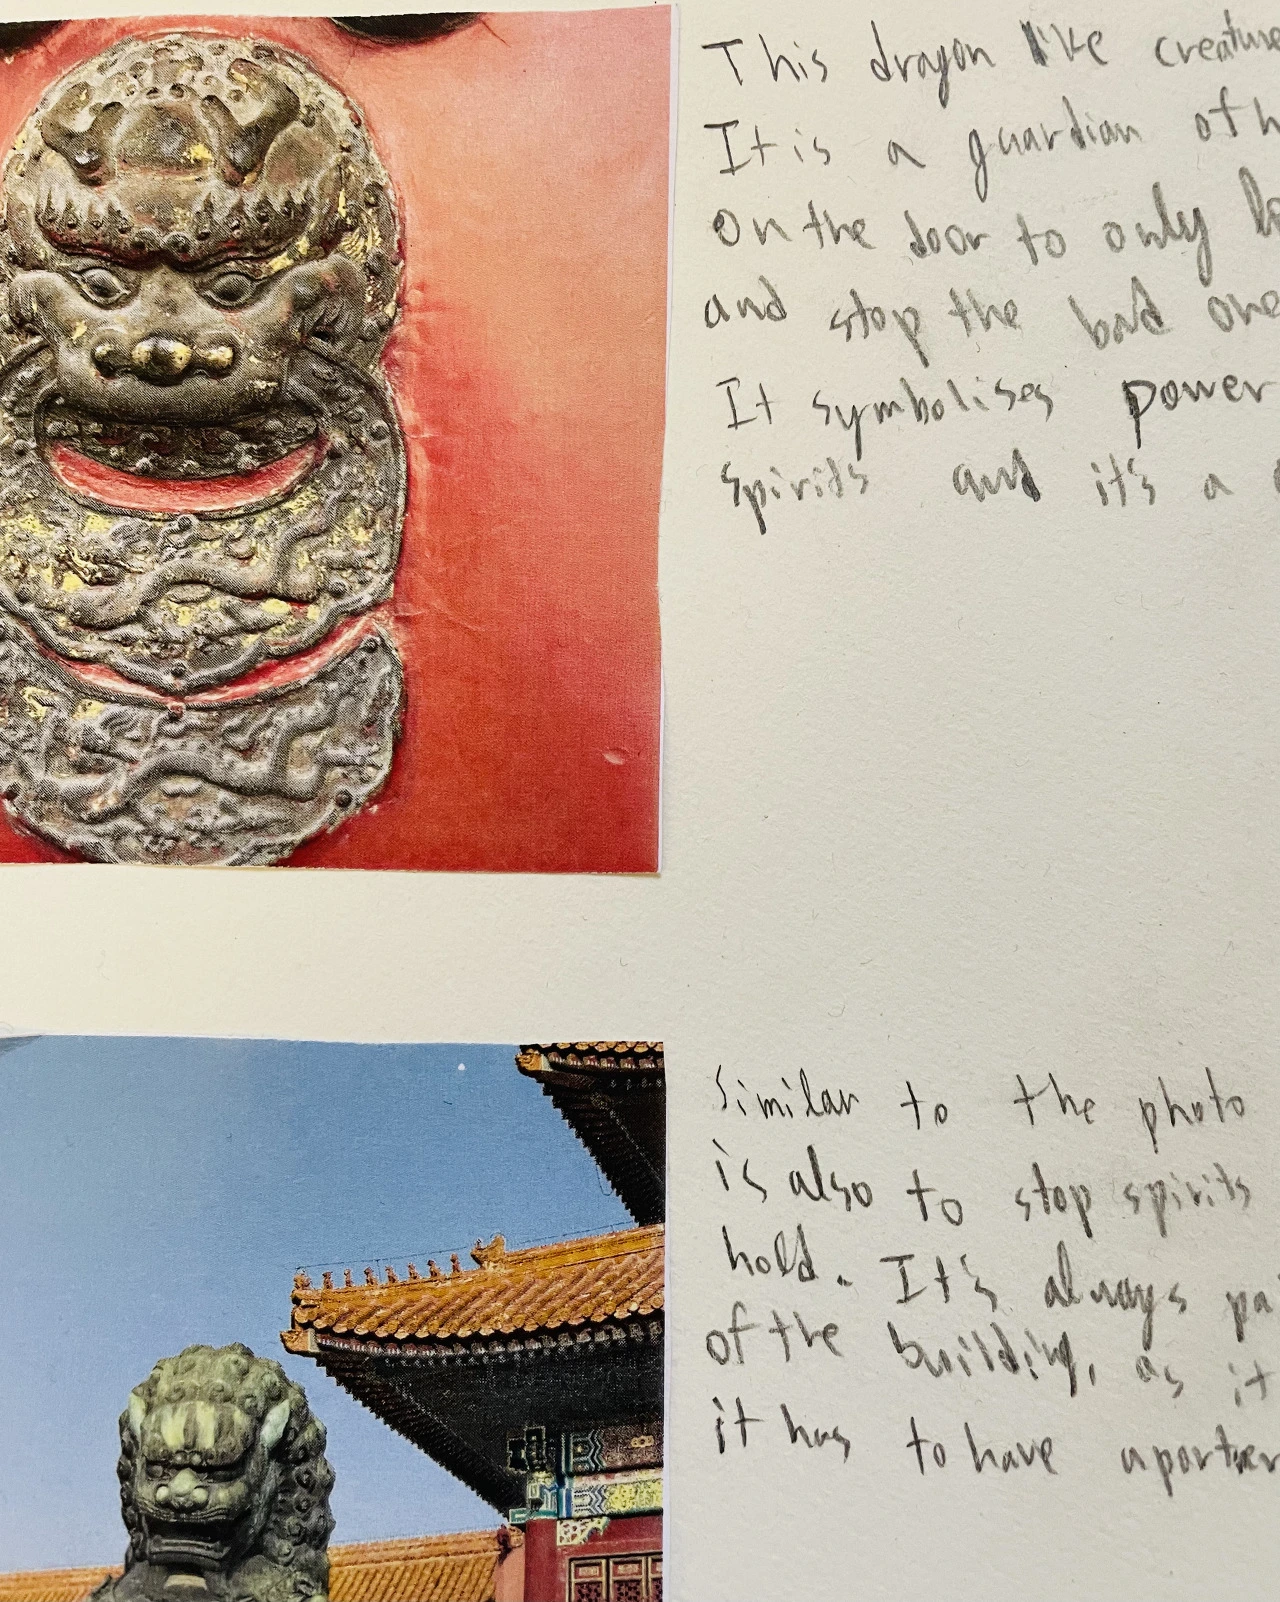 This dragon like creature
It is a guardian of h
on the door to only
and stop the bad one
It symbolises power
spirits and it's a
Similar to the photo
is also to stop spirits
hold. It's always pa
of the building, as it
it has to have a partner